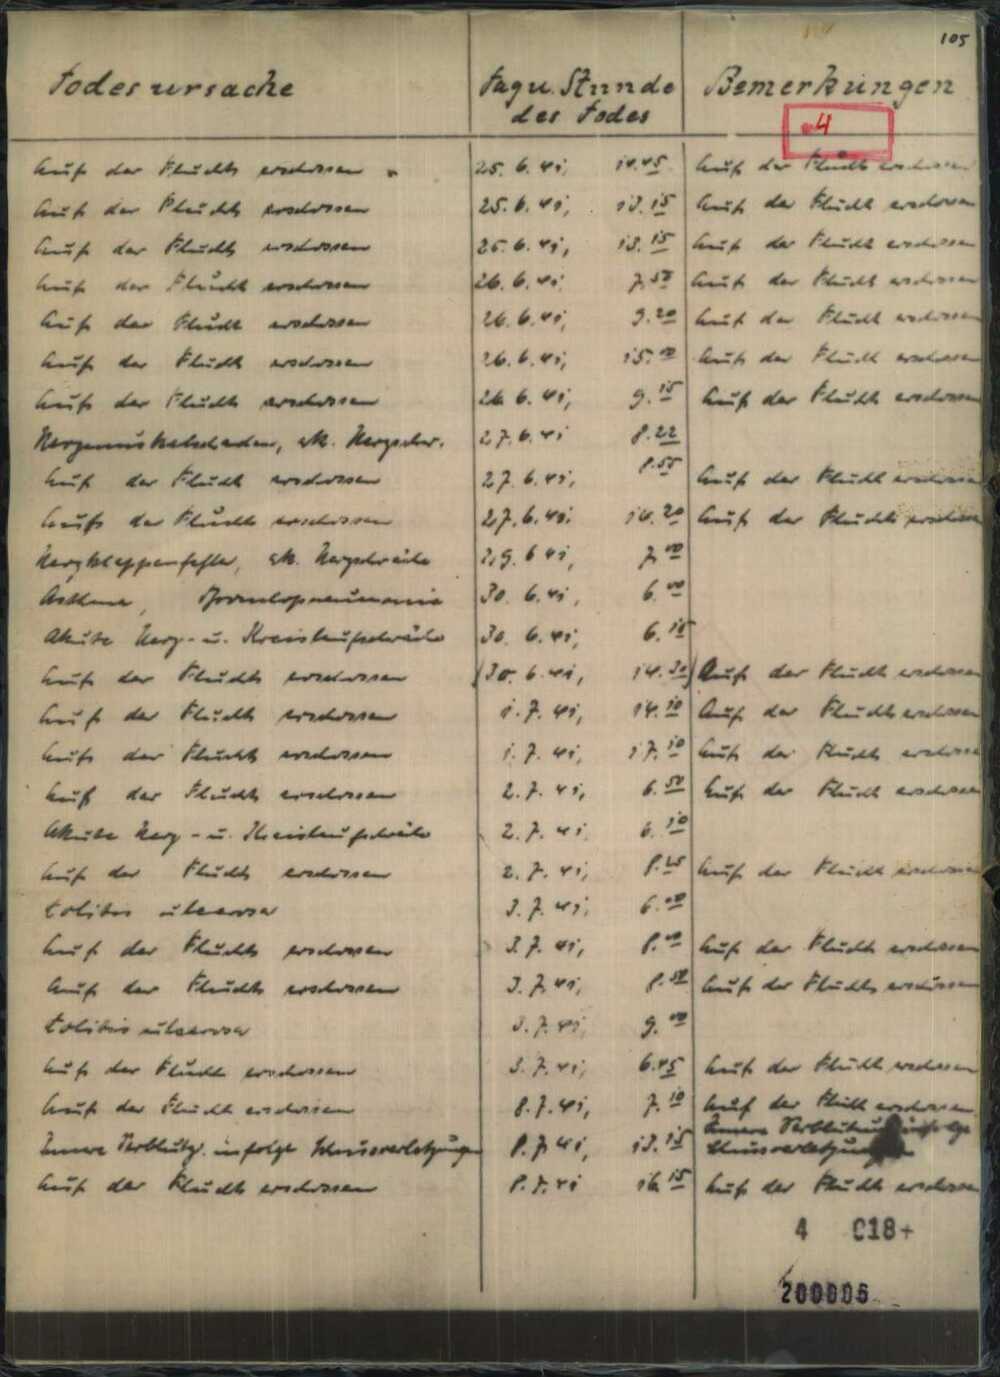 105
Todesursache Tag u. Stunde des Todes Bemerkungen
4
Auf der Flucht erschossen 25. 6. 41, 14.45 Auf der Flucht erschossen
Auf der Flucht erschossen 25. 6. 41, 13.15 Auf der Flucht erschossen
Auf der Flucht erschossen 25. 6. 41, 13.15 Auf der Flucht erschossen
Auf der Flucht erschossen 26. 6. 41, 7.50 Auf der Flucht erschossen
Auf der Flucht erschossen 26. 6. 41, 9.20 Auf der Flucht erschossen
Auf der Flucht erschossen 26. 6. 41, 15.00 Auf der Flucht erschossen
Auf der Flucht erschossen 26. 6. 41, 9.15 Auf der Flucht erschossen
Herzmuskelschaden, ak. Herzschw. 27. 6. 41 8.22
Auf der Flucht erschossen 27. 6. 41, 8.55 Auf der Flucht erschossen
Auf der Flucht erschossen 27. 6. 41, 14.20 Auf der Flucht erschossen
Herzklappenfehler, ak. Herzschwäche 29. 6 41, 7.00
Asthma, Bronchopneumonie 30. 6. 41, 6.00
Akute Herz- u. Kreislaufschwäche 30. 6. 41, 6.15
Auf der Flucht erschossen (30. 6. 41, 14.30) Auf der Flucht erschossen
Auf der Flucht erschossen 1. 7. 41, 14.10 Auf der Flucht erschossen
Auf der Flucht erschossen 1. 7. 41, 17.10 Auf der Flucht erschossen
Auf der Flucht erschossen 2. 7. 41, 6.50 Auf der Flucht erschossen
Akute Herz- u. Kreislaufschwäche 2. 7. 41, 6.10
Auf der Flucht erschossen 2. 7. 41, Auf der Flucht erschossen
Colitis ulcerosa 3. 7. 41, 6.00
Auf der Flucht erschossen 3. 7. 41, 8.00 Auf der Flucht erschossen
Auf der Flucht erschossen 3. 7. 41, 8.50 Auf der Flucht erschossen
Colitis ulcerosa 3. 7. 41, 9.00
Auf der Flucht erschossen 3. 7. 41, 6.45 Auf der Flucht erschossen
Auf der Flucht erschossen 8. 7. 41, 7.10 Auf der Flucht erschossen
Innere Verblutg. infolge Schussverletzungen 8. 7. 41, 13.15 Innere Verblutung infolge
Schussverletzungen
Auf der Flucht erschossen 8. 7. 41 16.15 Auf der Flucht erschossen
4 018+
200006